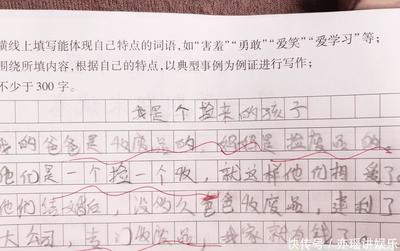 横线上填写能体现自己特点的词语,如“害羞”“勇敢”“爱笑”“爱学习”等;
围绕所填内容,根据自己的特点,以典型事例为例证进行写作;
不少于300字。
我是个捡来的孩子
我的爸爸是收废品的,妈妈是捡废品的。
他们是一个捡一个收,就这样他们相爱了
他们结婚后 没多久爸爸收废品,建利了
大公司 专门收废品,我家就有钱了
快传号/亦瑶讲娱乐